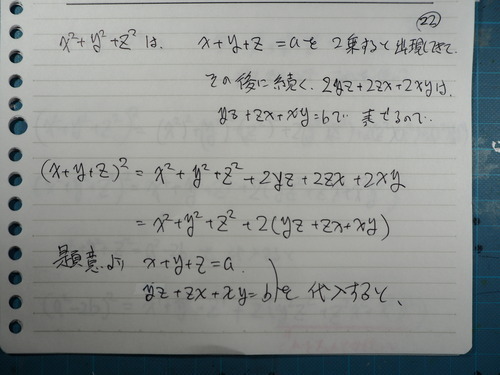 (23)
x²+y²+z² は、 x+y+z=aを 2乗すると 出現してきて、
その後に続く、2yz+2zx+2xyは、
yz+zx+xy=bで 表せるので、
(x+y+z)² = x²+y²+z²+2yz+2zx+2xy
= x²+y²+z²+2(yz+zx+xy)
題意より x+y+z=a、
yz+zx+xy=b を 代入すると、